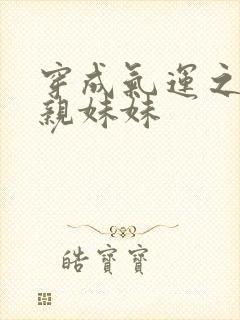 穿成氣運之
親妹妹
皓寶寶